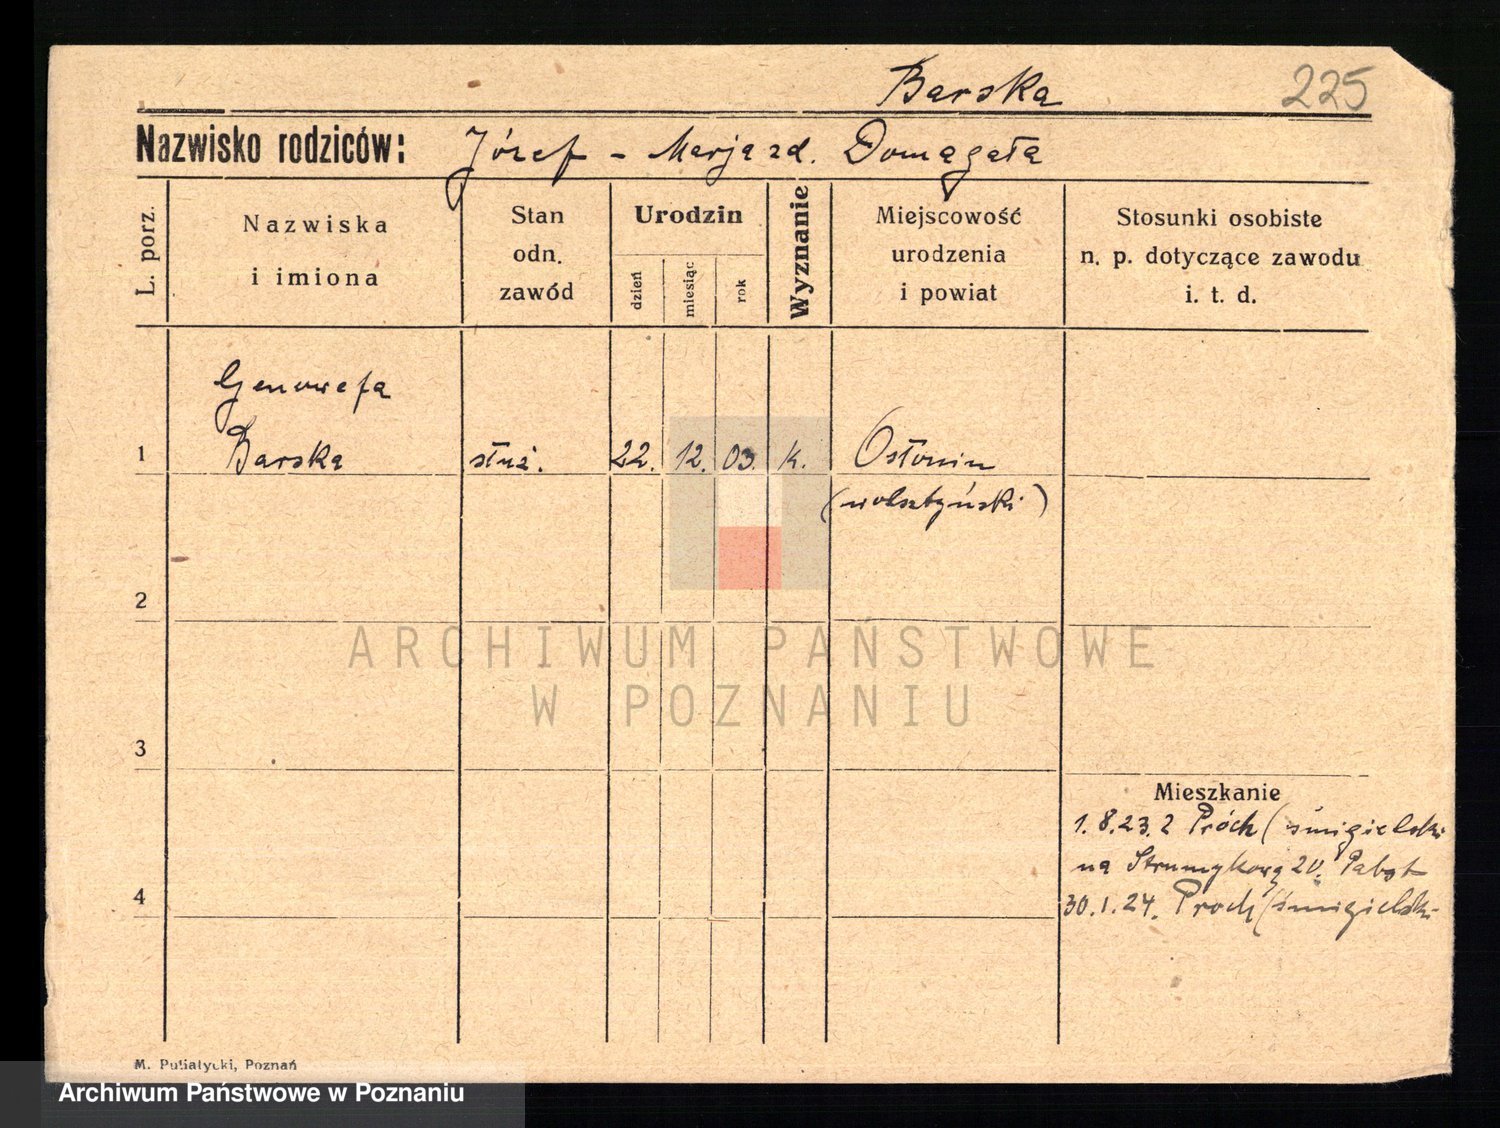 Barska
225
Nazwisko rodziców: Józef - Marja zd. Domagała
L. porz.
Nazwiska
i imiona
Stan
odn.
zawód
Urodzin
dzień
miesiąc
rok
Wyznanie
Miejscowość
urodzenia
i powiat
Stosunki osobiste
n. p. dotyczące zawodu
i. t. d.
Genowefa
1 Barska służ. 22. 12. 03. k. Osłonin
(wolsztyński)
2
3
4
Mieszkanie
1.8.23. z Próch (śmigielski
na Strumykową 20. Pabst
30.1.24. Proch (śmigielski
M. Putiatycki, Poznań
ARCHIWUM PAŃSTWOWE
W POZNANIU
Archiwum Państwowe w Poznaniu